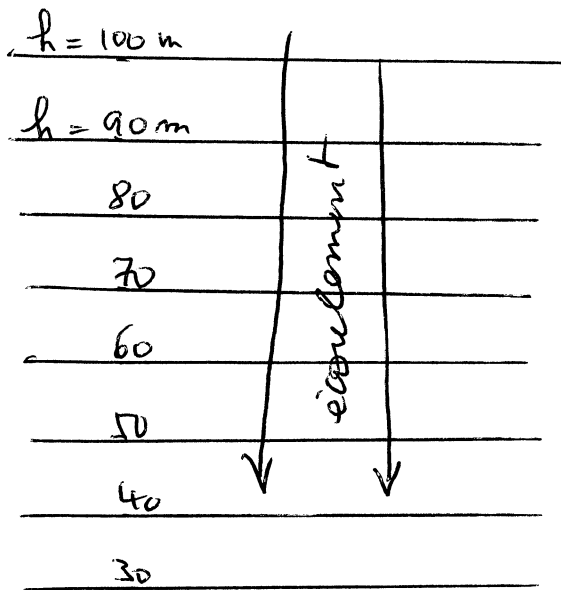 h = 100 m
h = 90 m
80
70
60
50
40
30
écoulement